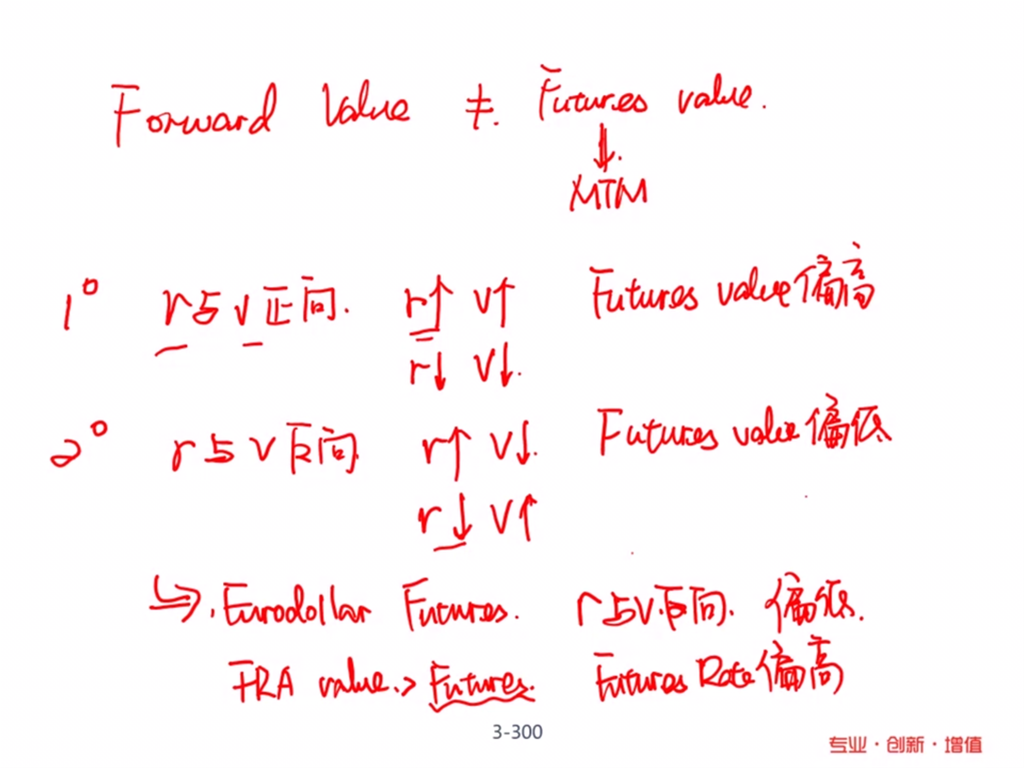 Forward Value ≠ Futures value.
↓
MTM
1° r与v正向. r↑ V↑ Futures value偏高
r↓ V↓.
2° r与v反向 r↑ V↓. Futures value偏低
r↓ V↑
↳. Eurodollar Futures. r与v反向. 偏低.
FRA value > Futures. Futures Rate偏高
3-300
专业·创新·增值